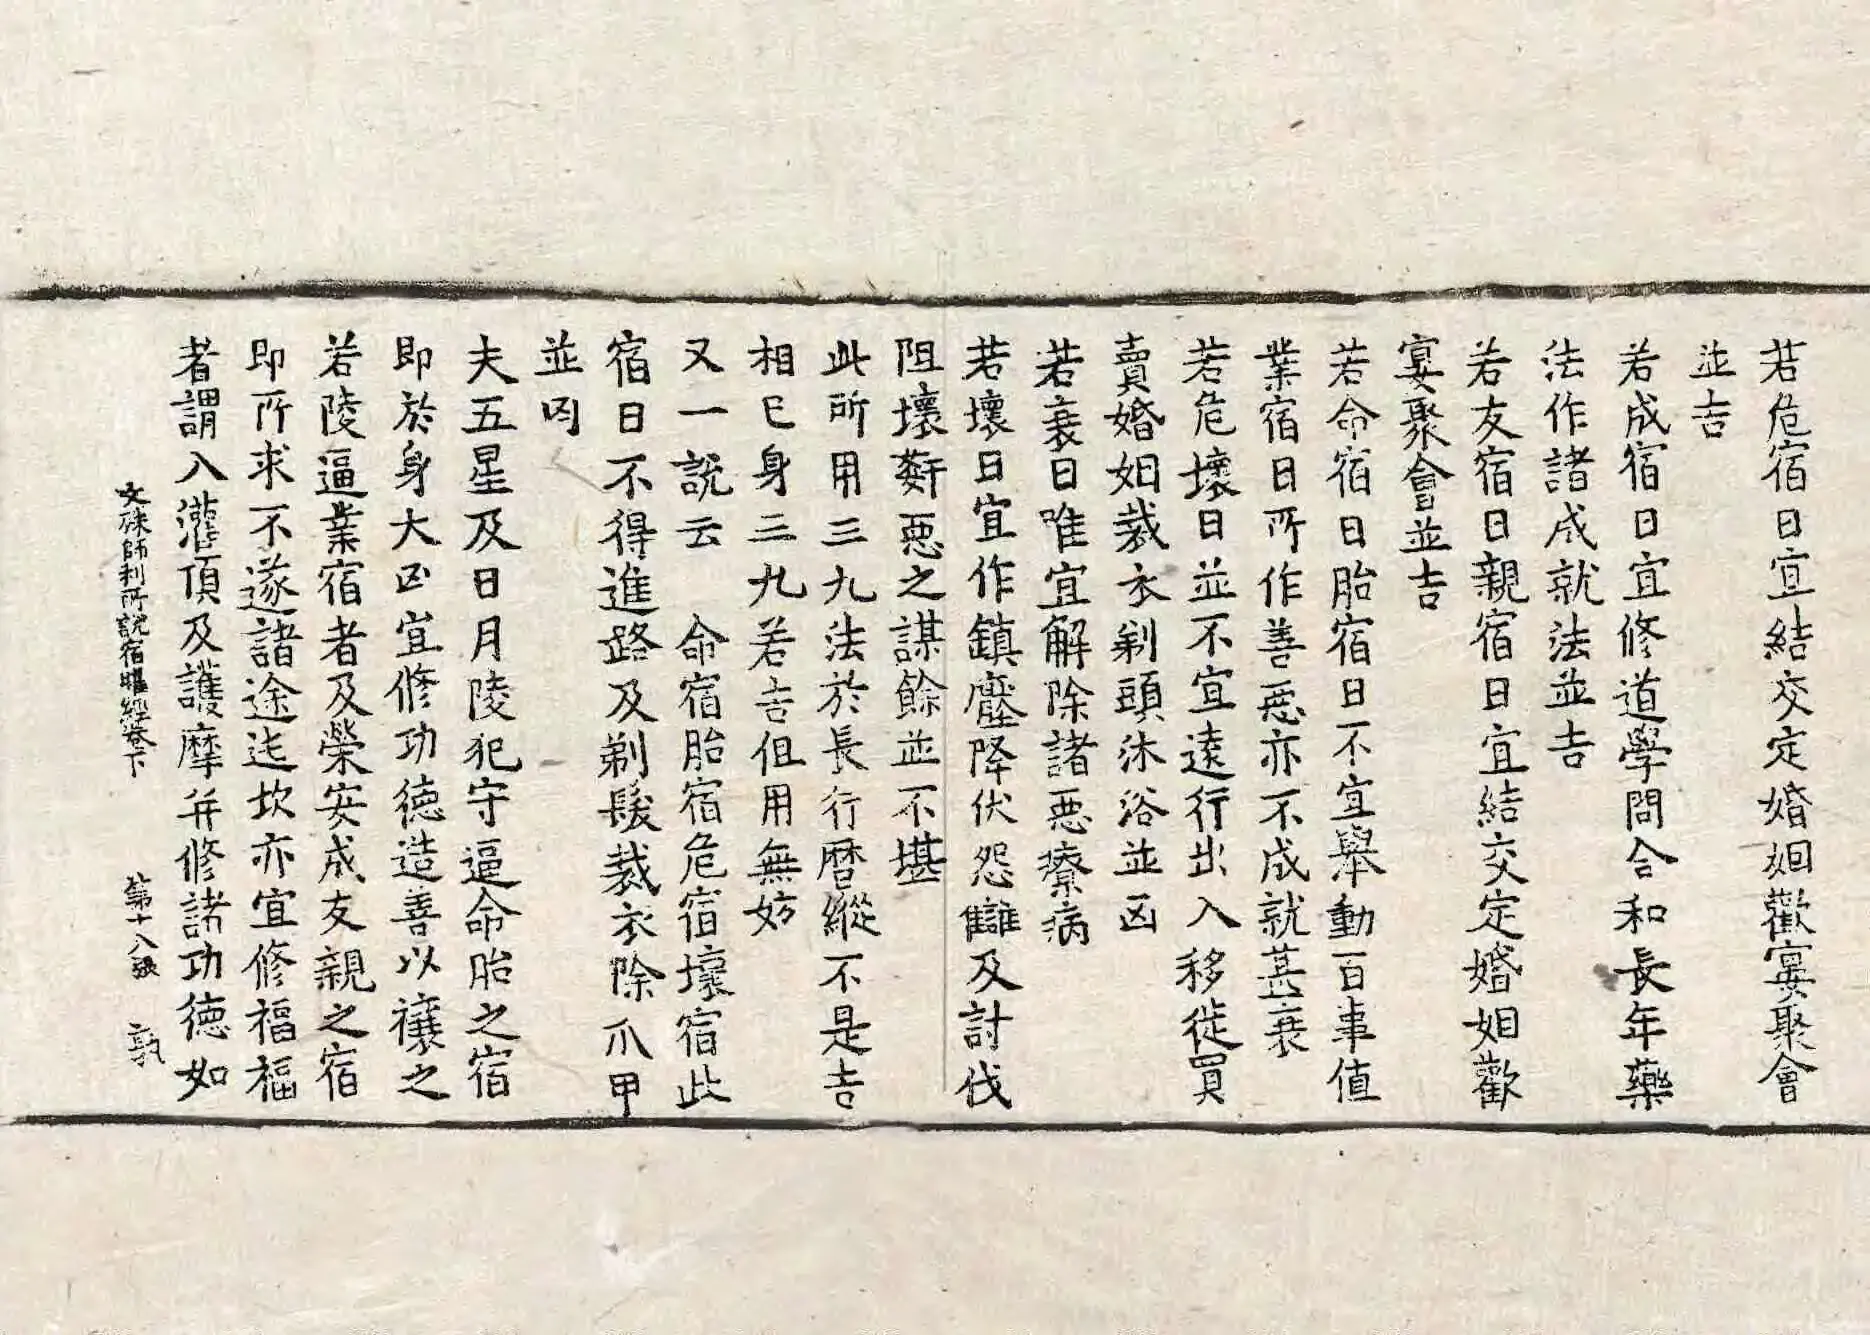 若危宿日宜結交定婚姻歡宴聚會
並吉
若成宿日宜修道學問合和長年藥
法作諸成就法並吉
若友宿日親宿日宜結交定婚姻歡
宴聚會並吉
若命宿日胎宿日不宜舉動百事值
業宿日所作善惡亦不成就甚衰
若危壞日並不宜遠行出入移徙買
賣婚姻裁衣剃頭沐浴並凶
若衰日唯宜解除諸惡療病
若壞日宜作鎮壓降伏怨讎及討伐
阻壞姧惡之謀餘並不堪
此所用三九法於長行曆縱不是吉
相己身三九若吉但用無妨
又一說云　命宿胎宿危宿壞宿此
宿日不得進路及剃髮裁衣除爪甲
並凶
夫五星及日月陵犯守逼命胎之宿
即於身大凶宜修功德造善以禳之
若陵逼業宿者及榮安成友親之宿
即所求不遂諸途迍坎亦宜修福福
者謂入灌頂及護摩并修諸功德如
文殊師利所說宿曜經卷下　第十八張　孰